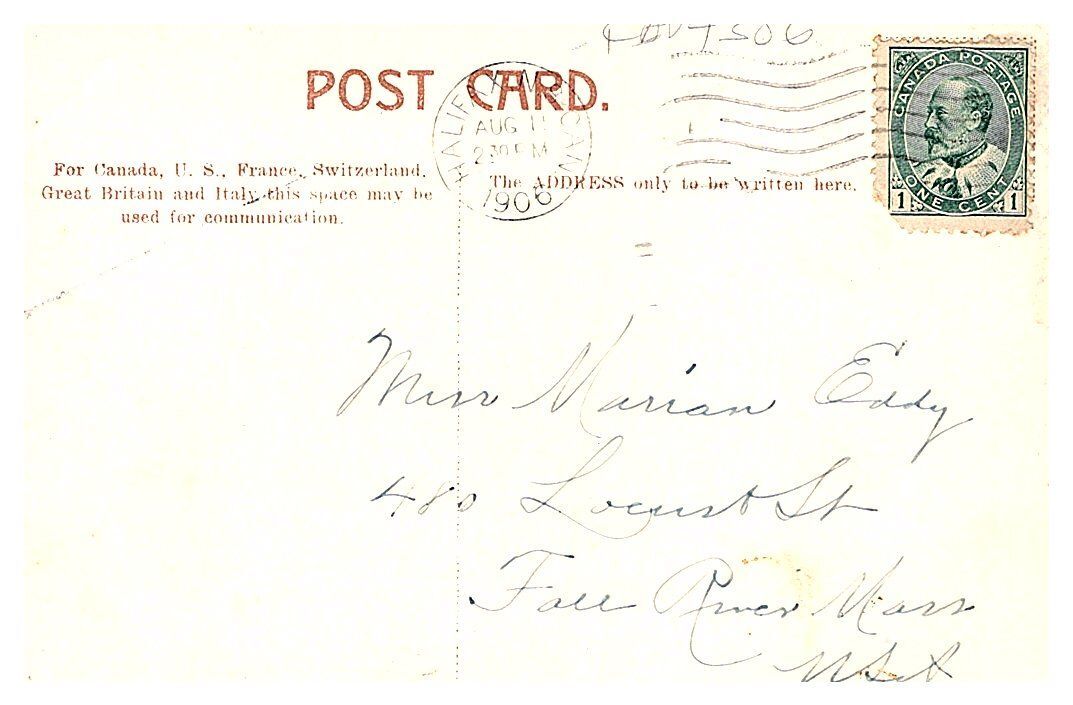 POST CARD.
HALIFAX
CAN
AUG 11
2 30 PM
1906
CANADA POSTAGE
1 ONE CENT 1
For Canada, U. S., France, Switzerland,
Great Britain and Italy this space may be
used for communication.
The ADDRESS only to be written here.
Miss Marian Eddy
480 Locust St
Fall River Mass
USA